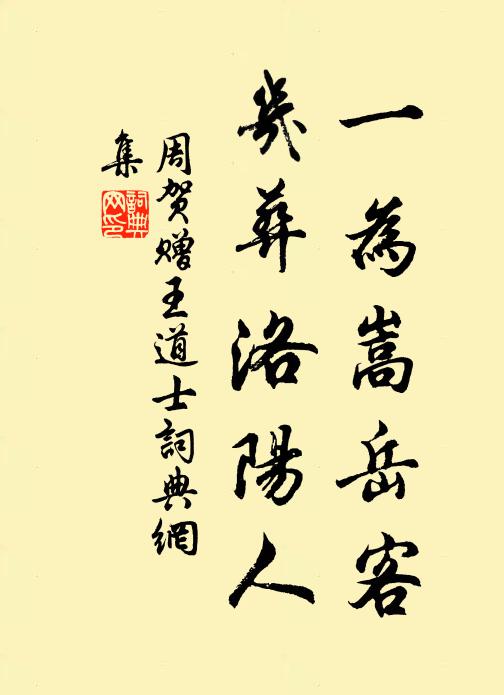 一為嵩岳客
幾葬洛陽人
周贺赠王道士詞典網
集
詞典
网印